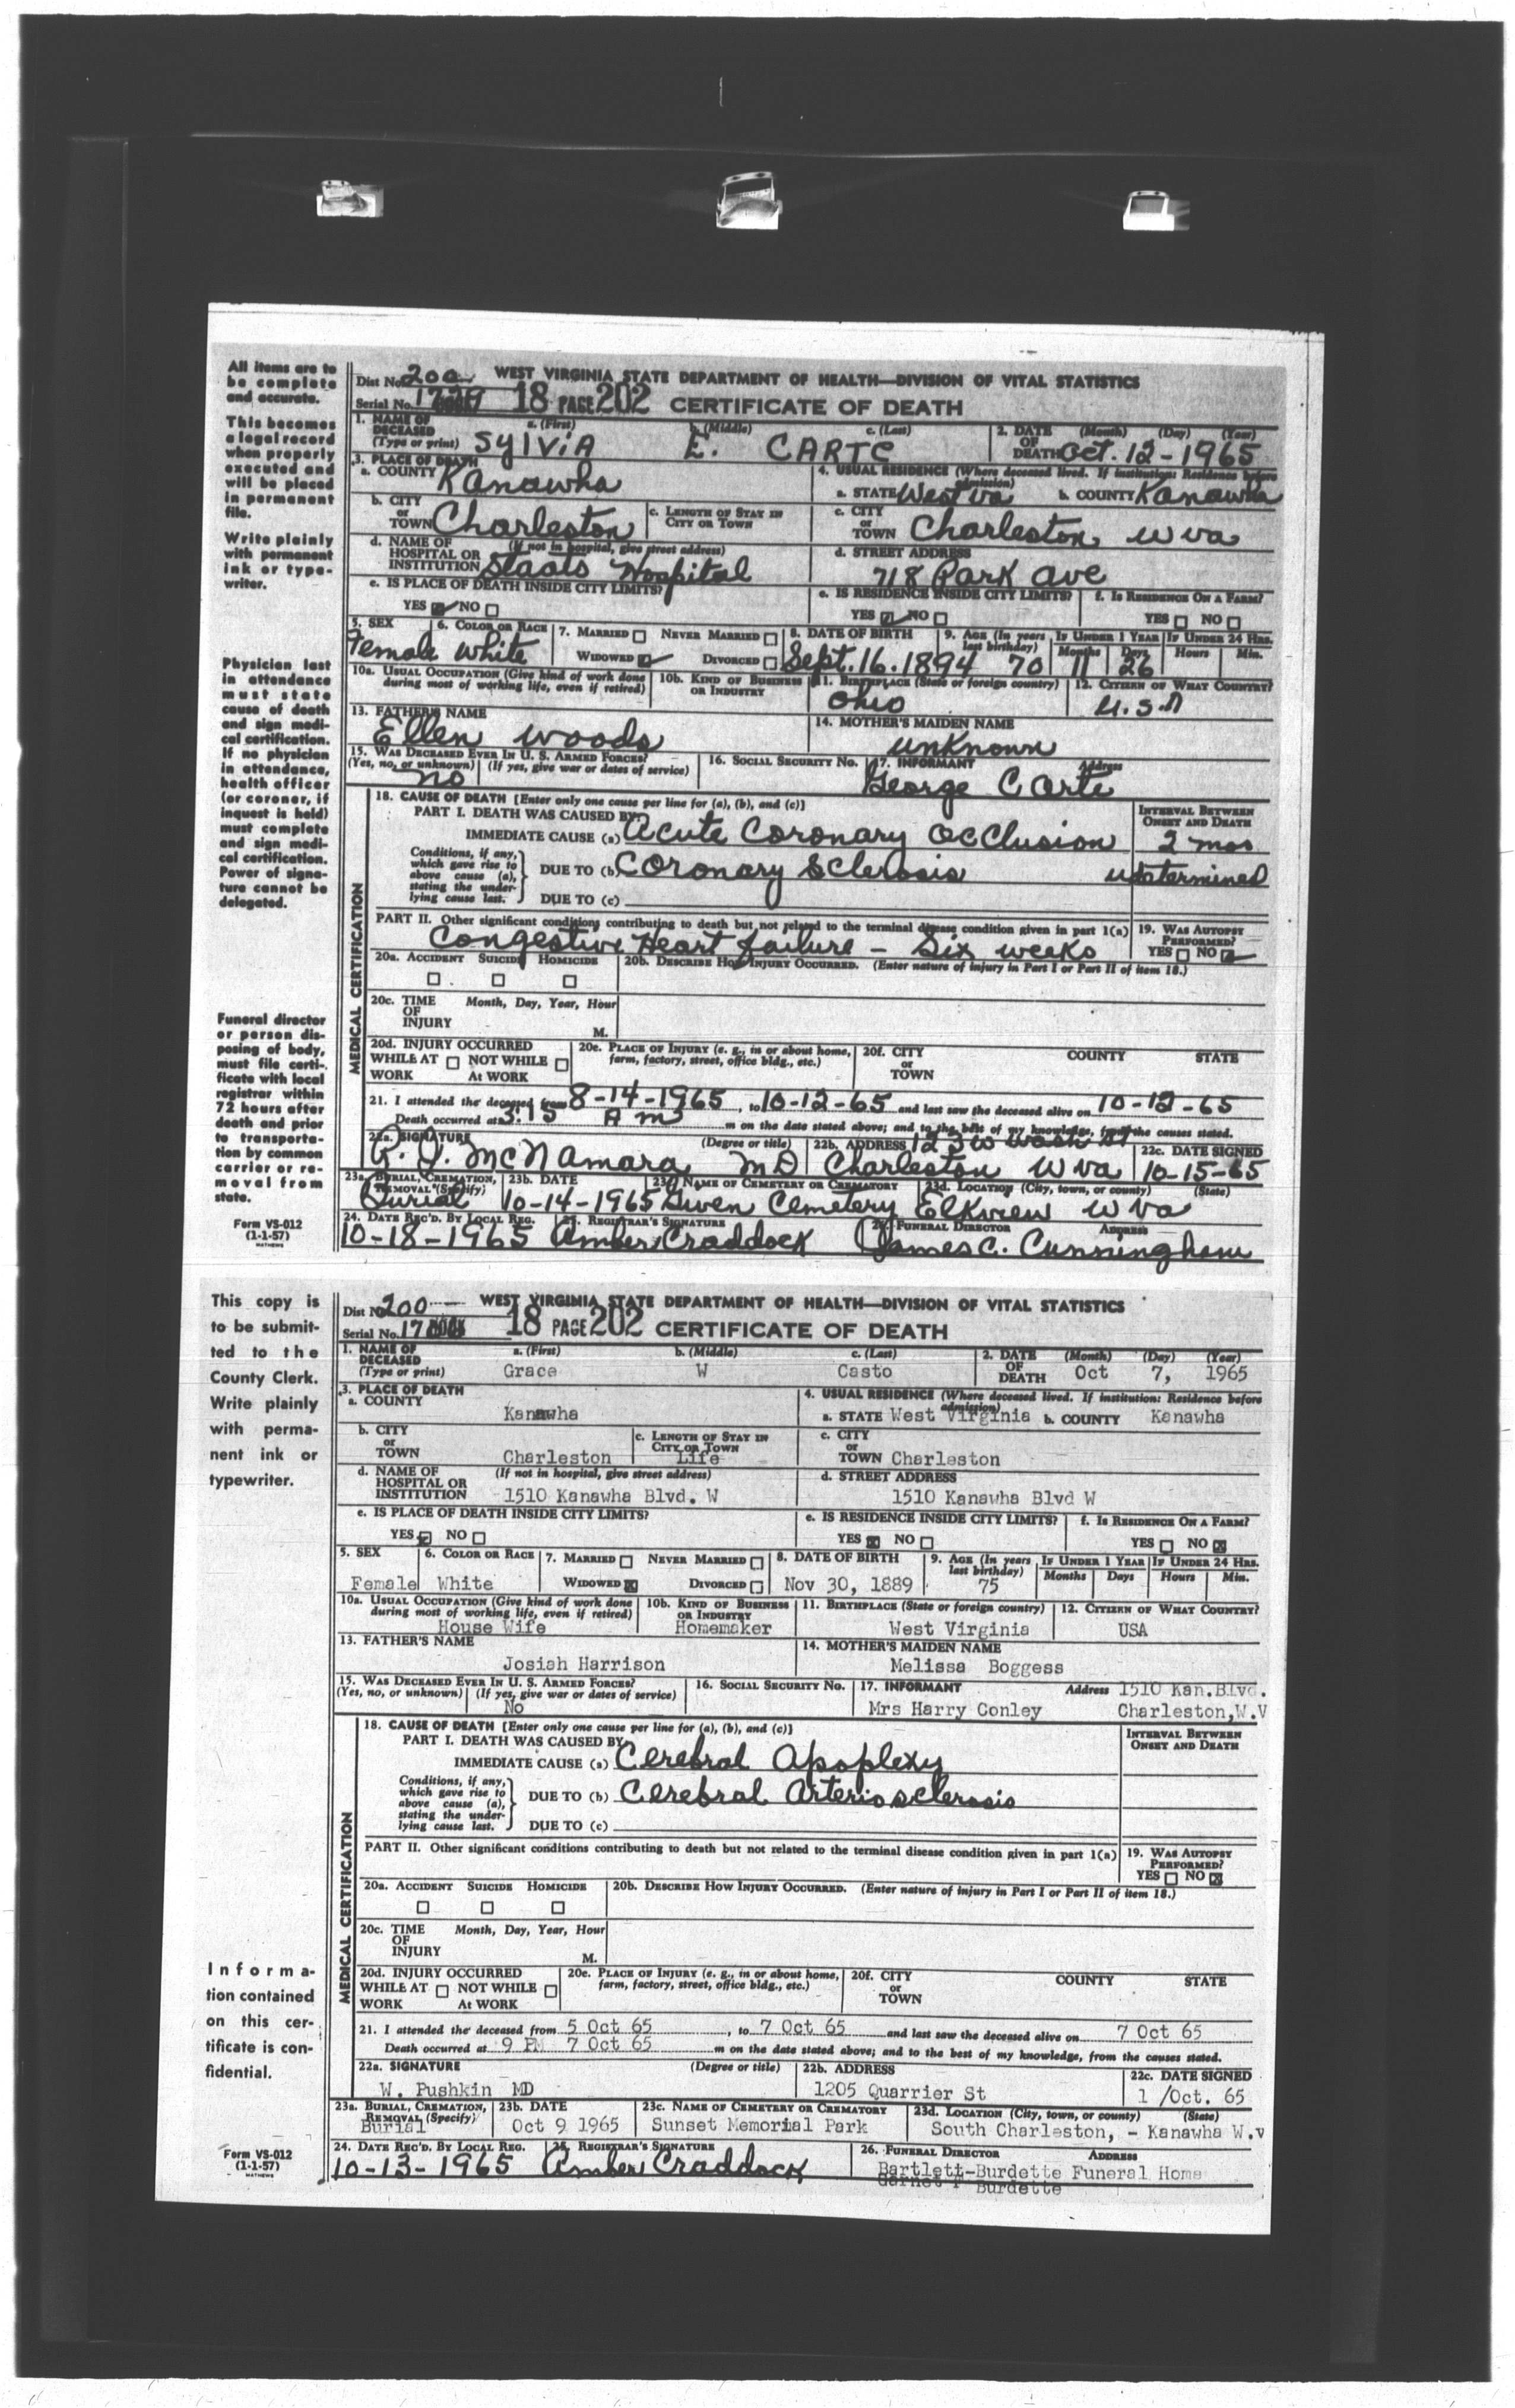 All items are to be complete and accurate.
This becomes a legal record when properly executed and will be placed in permanent file.
Write plainly with permanent ink or typewriter.
Physician last in attendance must state cause of death and sign medical certification. If no physician in attendance, health officer (or coroner, if inquest is held) must complete and sign medical certification. Power of signature cannot be delegated.
Funeral director or person disposing of body, must file certificate with local registrar within 72 hours after death and prior to transportation by common carrier or removal from state.
Form VS-012
(1-1-57)
MATHEWS
Dist No. 200 WEST VIRGINIA STATE DEPARTMENT OF HEALTH—DIVISION OF VITAL STATISTICS
Serial No. 18 PAGE 202 CERTIFICATE OF DEATH
1. NAME OF DECEASED (Type or print) a. (First) b. (Middle) c. (Last) 2. DATE OF DEATH (Month) (Day) (Year)
SYLVIA E. CARTE Oct. 12-1965
3. PLACE OF DEATH 4. USUAL RESIDENCE (Where deceased lived. If institution: Residence before admission)
a. COUNTY Kanawha a. STATE West Va b. COUNTY Kanawha
b. CITY or TOWN Charleston c. LENGTH OF STAY IN CITY OR TOWN c. CITY or TOWN Charleston W va
d. NAME OF HOSPITAL OR INSTITUTION (If not in hospital, give street address) Staats Hospital d. STREET ADDRESS 718 Park Ave
e. IS PLACE OF DEATH INSIDE CITY LIMITS? e. IS RESIDENCE INSIDE CITY LIMITS? f. IS RESIDENCE ON A FARM?
YES NO YES NO YES NO
5. SEX 6. COLOR OR RACE 7. MARRIED NEVER MARRIED 8. DATE OF BIRTH 9. AGE (In years last birthday) IF UNDER 1 YEAR IF UNDER 24 HRS.
Female White WIDOWED DIVORCED Sept. 16. 1894 70 Months 11 Days 26 Hours Min.
10a. USUAL OCCUPATION (Give kind of work done during most of working life, even if retired) 10b. KIND OF BUSINESS OR INDUSTRY 11. BIRTHPLACE (State or foreign country) 12. CITIZEN OF WHAT COUNTRY?
Ohio U.S.A
13. FATHER'S NAME 14. MOTHER'S MAIDEN NAME
Ellen Woods unknown
15. WAS DECEASED EVER IN U. S. ARMED FORCES? (Yes, no, or unknown) (If yes, give war or dates of service) 16. SOCIAL SECURITY NO. 17. INFORMANT Address
no George Carte
MEDICAL CERTIFICATION
18. CAUSE OF DEATH [Enter only one cause per line for (a), (b), and (c)] INTERVAL BETWEEN ONSET AND DEATH
PART I. DEATH WAS CAUSED BY:
IMMEDIATE CAUSE (a) Acute Coronary Occlusion 2 mos
Conditions, if any, which gave rise to above cause (a), stating the underlying cause last.
DUE TO (b) Coronary Sclerosis
DUE TO (c)
PART II. Other significant conditions contributing to death but not related to the terminal disease condition given in part 1(a) 19. WAS AUTOPSY PERFORMED?
Congestive Heart failure - Six weeks YES NO
20a. ACCIDENT SUICIDE HOMICIDE 20b. DESCRIBE HOW INJURY OCCURRED. (Enter nature of injury in Part I or Part II of item 18.)
20c. TIME OF INJURY Month, Day, Year, Hour M.
20d. INJURY OCCURRED WHILE AT WORK NOT WHILE At WORK 20e. PLACE OF INJURY (e. g., in or about home, farm, factory, street, office bldg., etc.) 20f. CITY or TOWN COUNTY STATE
21. I attended the deceased from 8-14-1965, to 10-12-65 and last saw the deceased alive on 10-12-65
Death occurred at 3:15 AM m on the date stated above; and to the best of my knowledge, from the causes stated.
22a. SIGNATURE (Degree or title) 22b. ADDRESS 22c. DATE SIGNED
McNamara MD Charleston W va 10-15-65
23a. BURIAL, CREMATION, REMOVAL (Specify) 23b. DATE 23c. NAME OF CEMETERY OR CREMATORY 23d. LOCATION (City, town, or county) (State)
Burial 10-14-1965 Gwen Cemetery Elkview W va
24. DATE REC'D. BY LOCAL REG. 25. REGISTRAR'S SIGNATURE 26. FUNERAL DIRECTOR ADDRESS
10-18-1965 Amber Craddock James C. Cunningham
This copy is to be submitted to the County Clerk.
Write plainly with permanent ink or typewriter.
Information contained on this certificate is confidential.
Form VS-012
(1-1-57)
MATHEWS
Dist No. 200 WEST VIRGINIA STATE DEPARTMENT OF HEALTH—DIVISION OF VITAL STATISTICS
Serial No. 17 18 PAGE 202 CERTIFICATE OF DEATH
1. NAME OF DECEASED (Type or print) a. (First) b. (Middle) c. (Last) 2. DATE OF DEATH (Month) (Day) (Year)
Grace W Casto Oct 7, 1965
3. PLACE OF DEATH 4. USUAL RESIDENCE (Where deceased lived. If institution: Residence before admission)
a. COUNTY Kanawha a. STATE West Virginia b. COUNTY Kanawha
b. CITY or TOWN Charleston c. LENGTH OF STAY IN CITY OR TOWN Life c. CITY or TOWN Charleston
d. NAME OF HOSPITAL OR INSTITUTION (If not in hospital, give street address) 1510 Kanawha Blvd. W d. STREET ADDRESS 1510 Kanawha Blvd W
e. IS PLACE OF DEATH INSIDE CITY LIMITS? e. IS RESIDENCE INSIDE CITY LIMITS? f. IS RESIDENCE ON A FARM?
YES NO YES NO YES NO
5. SEX 6. COLOR OR RACE 7. MARRIED NEVER MARRIED 8. DATE OF BIRTH 9. AGE (In years last birthday) IF UNDER 1 YEAR IF UNDER 24 HRS.
Female White WIDOWED DIVORCED Nov 30, 1889 75 Months Days Hours Min.
10a. USUAL OCCUPATION (Give kind of work done during most of working life, even if retired) 10b. KIND OF BUSINESS OR INDUSTRY 11. BIRTHPLACE (State or foreign country) 12. CITIZEN OF WHAT COUNTRY?
House Wife Homemaker West Virginia USA
13. FATHER'S NAME 14. MOTHER'S MAIDEN NAME
Josiah Harrison Melissa Boggess
15. WAS DECEASED EVER IN U. S. ARMED FORCES? (Yes, no, or unknown) (If yes, give war or dates of service) 16. SOCIAL SECURITY NO. 17. INFORMANT Address 1510 Kan.Blvd.
No Mrs Harry Conley Charleston,W.V
MEDICAL CERTIFICATION
18. CAUSE OF DEATH [Enter only one cause per line for (a), (b), and (c)] INTERVAL BETWEEN ONSET AND DEATH
PART I. DEATH WAS CAUSED BY:
IMMEDIATE CAUSE (a) Cerebral Apoplexy
Conditions, if any, which gave rise to above cause (a), stating the underlying cause last.
DUE TO (b) Cerebral Arteriosclerosis
DUE TO (c)
PART II. Other significant conditions contributing to death but not related to the terminal disease condition given in part 1(a) 19. WAS AUTOPSY PERFORMED?
YES NO
20a. ACCIDENT SUICIDE HOMICIDE 20b. DESCRIBE HOW INJURY OCCURRED. (Enter nature of injury in Part I or Part II of item 18.)
20c. TIME OF INJURY Month, Day, Year, Hour M.
20d. INJURY OCCURRED WHILE AT WORK NOT WHILE At WORK 20e. PLACE OF INJURY (e. g., in or about home, farm, factory, street, office bldg., etc.) 20f. CITY or TOWN COUNTY STATE
21. I attended the deceased from 5 Oct 65, to 7 Oct 65 and last saw the deceased alive on 7 Oct 65
Death occurred at 9 PM 7 Oct 65 m on the date stated above; and to the best of my knowledge, from the causes stated.
22a. SIGNATURE (Degree or title) 22b. ADDRESS 22c. DATE SIGNED
W. Pushkin MD 1205 Quarrier St 1 /Oct. 65
23a. BURIAL, CREMATION, REMOVAL (Specify) 23b. DATE 23c. NAME OF CEMETERY OR CREMATORY 23d. LOCATION (City, town, or county) (State)
Burial Oct 9 1965 Sunset Memorial Park South Charleston, - Kanawha W.v
24. DATE REC'D. BY LOCAL REG. 25. REGISTRAR'S SIGNATURE 26. FUNERAL DIRECTOR ADDRESS
10-13-1965 Amber Craddock Bartlett-Burdette Funeral Home
Garnet F Burdette